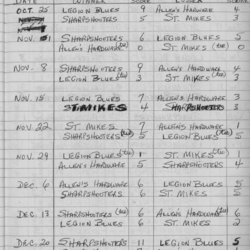 DATE WINNER SCORE LOSER SCORE
OCT. 25 LEGION BLUES 9 ALLEN'S HARDWARE
SHARPSHOOTERS 5 ST. MIKES 3
NOV. 1 SHARPSHOOTERS 6 LEGION BLUES 5
ALLEN'S HARDWARE (tie) 0 ST. MIKES (tie) 0
NOV. 8 SHARPSHOOTERS 9 ALLEN'S HARDWARE 4
LEGION BLUES 3 ST. MIKES 3
NOV. 15 LEGION BLUES 7 ALLEN'S HARDWARE 3
ST. MIKES 4 SHARPSHOOTERS 3
NOV. 22 ST. MIKES 7 ALLEN'S HARDWARE
SHARPSHOOTERS (tie) 5 LEGION BLUES (tie) 5
NOV. 29 LEGION BLUES (tie) 1 ST. MIKES (tie)
ALLEN'S HARDWARE 5 SHARPSHOOTERS 4
DEC. 6 ALLEN'S HARDWARE 6 LEGION BLUES 5
SHARPSHOOTERS 6 ST. MIKES 2
DEC. 13 SHARPSHOOTERS (tie) 6 ALLEN'S HARDWARE (tie) 6
LEGION BLUES 7 ST. MIKES 2
DEC. 20 SHARPSHOOTERS 11 LEGION BLUES 6